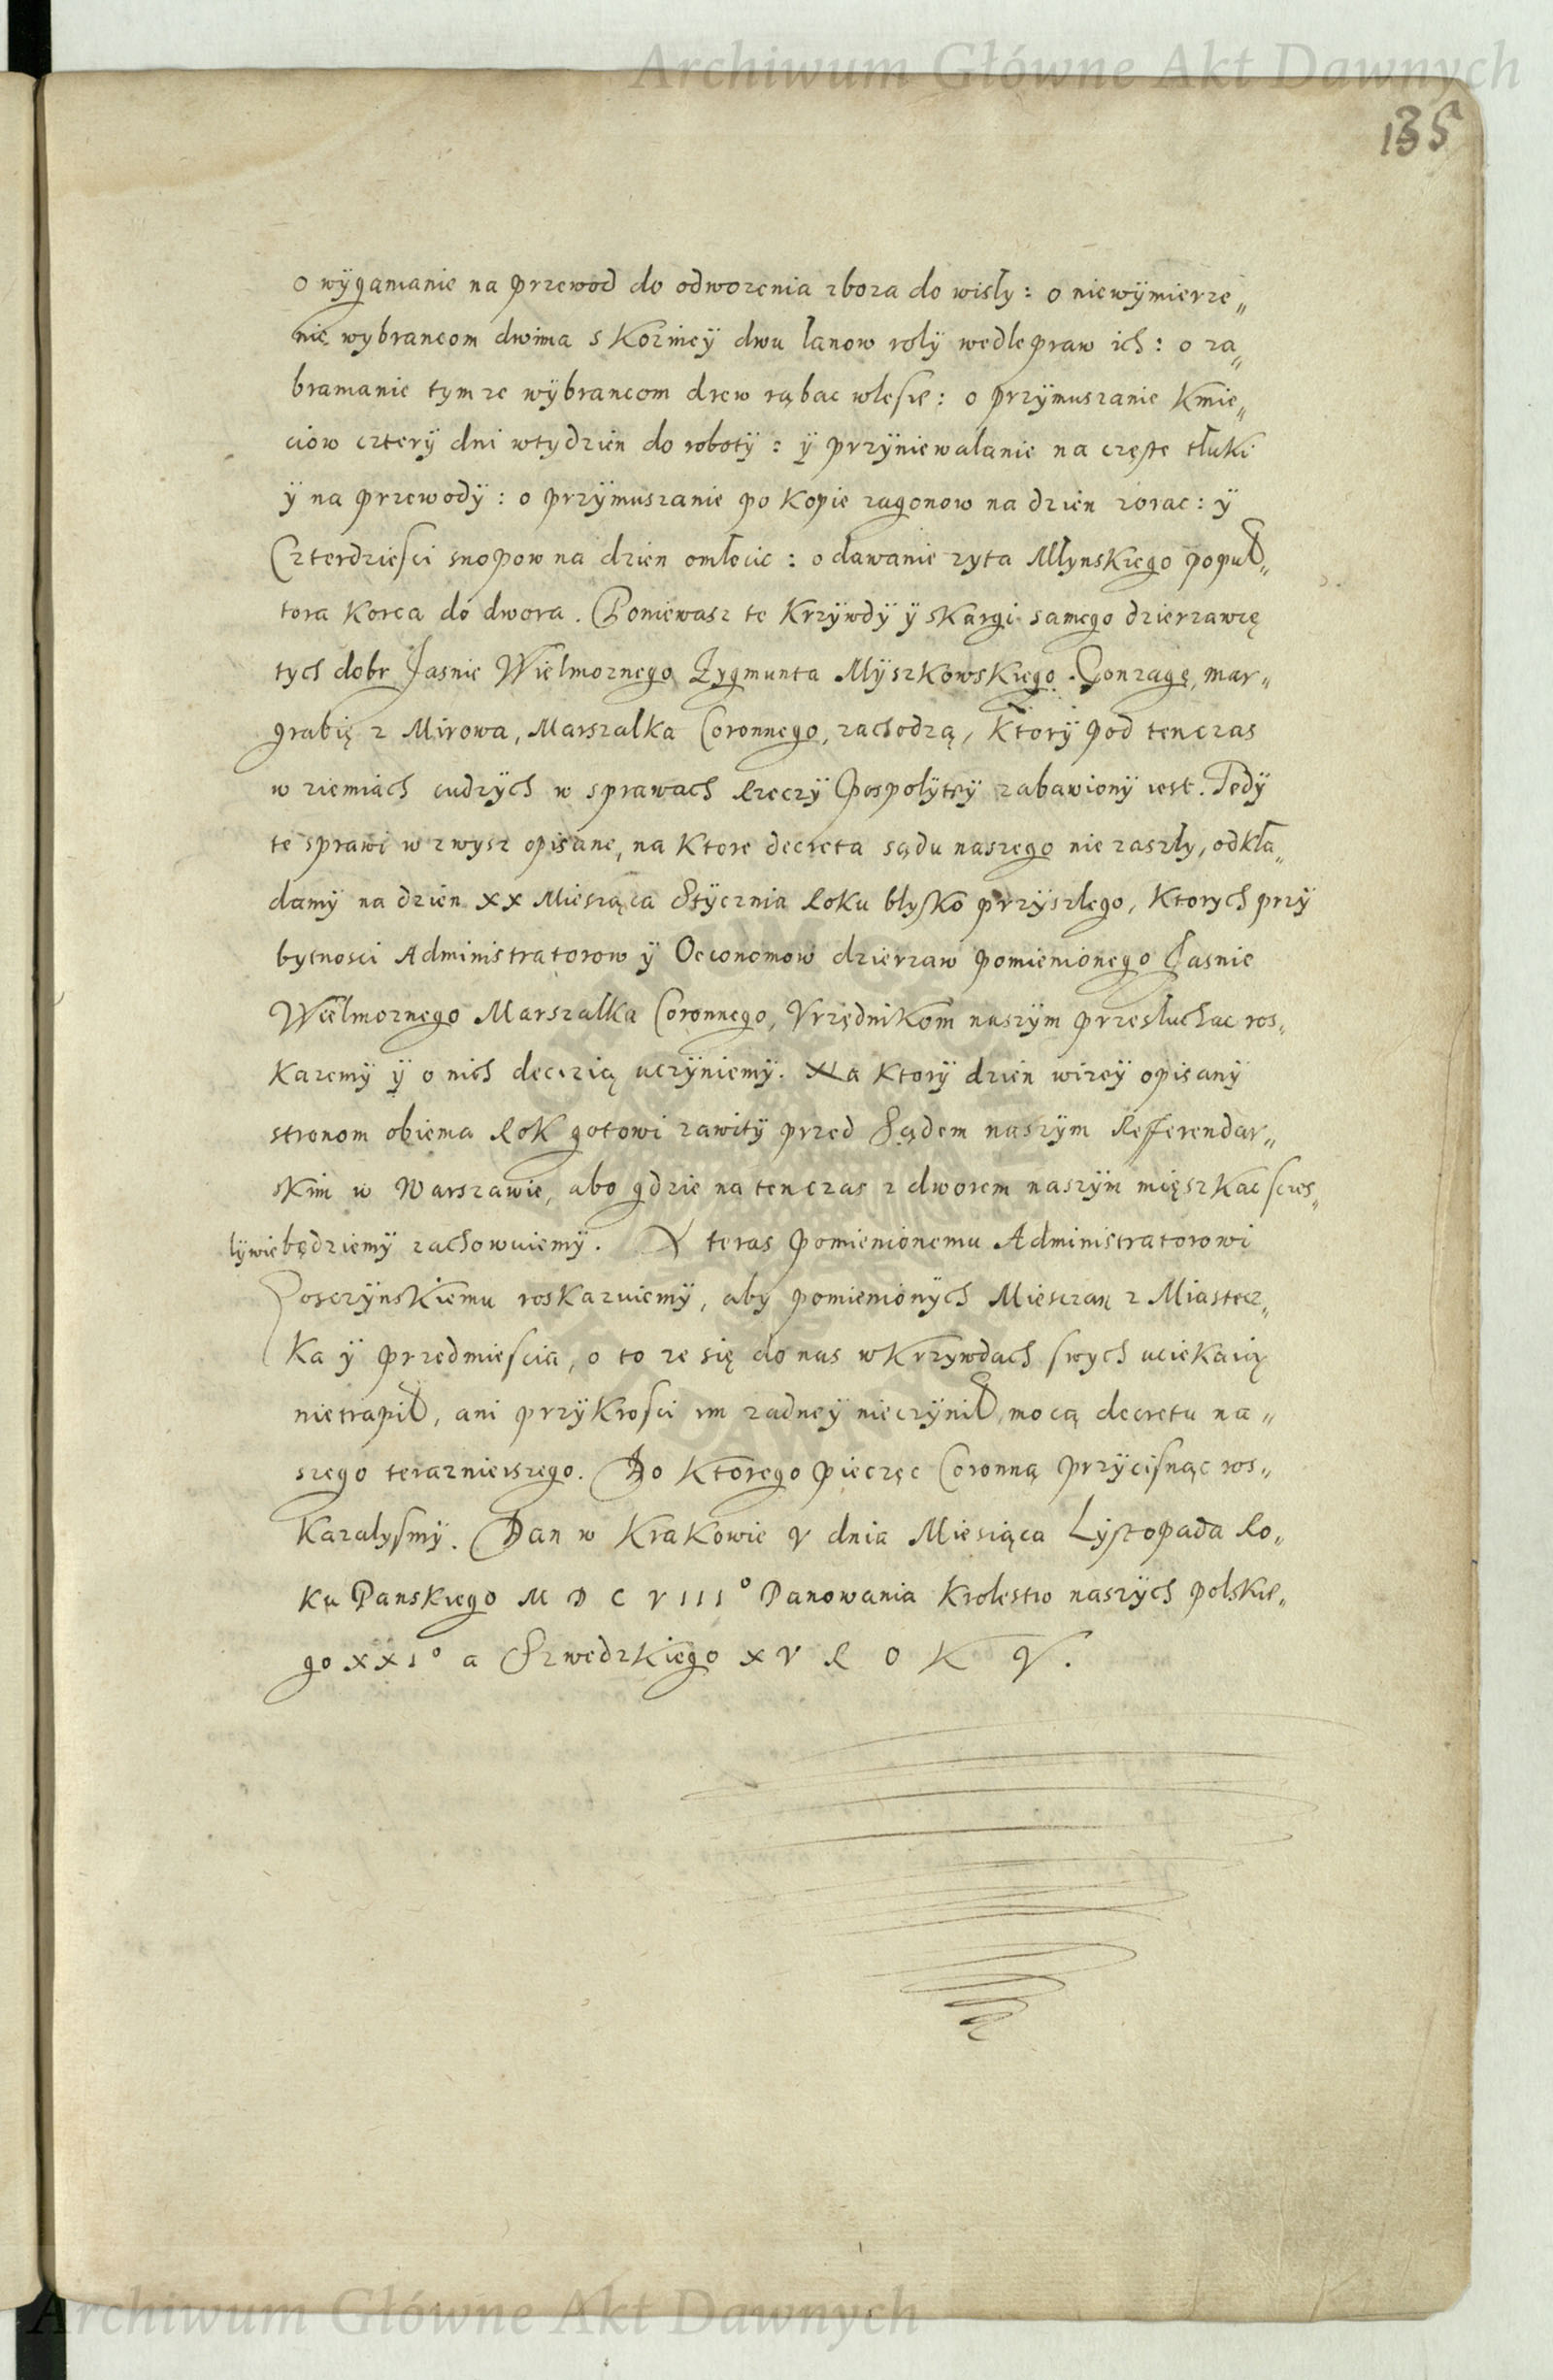 Archiwum Główne Akt Dawnych
135
o wÿganianie na przewod do odwozenia zboza do wisly : o niewÿmierze„
nie wybrancom dwima s Kozniceÿ dwu lanow rolÿ wedle praw ich : o za„
bramanie tym ze wÿbrancom drew rąbac wlesie : o przÿmuszanie Kmie„
ciow czterÿ dni wtydzien do robotÿ : ÿ przÿniewalanie na częste tłuki
ÿ na przewodÿ : o przÿmuszanie po Kopie zagonow na dzien zorac : ÿ
Czterdziesci snopow na dzien omłocic : o dawanie zyta Młynskiego popuł„
tora Korca do dwora . Poniewasz te Krzÿwdÿ ÿ skargi samego dzierzawcę
tych dobr Jasnie Wielmoznego Zygmunta Mÿszkowskiego Gonzagę, mar„
grabię z Mirowa, Marszalka Coronnego, zachodzą, Ktorÿ pod tenczas
w ziemiach cudzych w sprawach Rzeczÿ Pospolÿtey zabawionÿ iest. Tedÿ
te sprawi w zwysz opisane, na Ktore decreta sądu naszego nie zaszły, odkła„
damÿ na dzien xx Miesiąca Stÿcznia Roku blysko przÿszlego, Ktorych przÿ
bytnosci Administratorow ÿ Oeconomow dzierzaw pomienionego Jasnie
Wielmoznego Marszalka Coronnego, Vrzędnikom naszÿm przesłuchac ros„
Kazemÿ ÿ o nich decizią uczÿniemÿ. Na Ktorÿ dzien wizeÿ opisanÿ
stronom obiema Rok gotowi zawitÿ przed Sądem naszÿm Refferendar„
skim w Warszawie, abo gdzie na tenczas z dworem naszÿm mięszkac sczes„
lÿwie będziemÿ zachowuiemÿ. Y teras pomienionemu Administratorowi
roskazuiemÿ, aby pomienionÿch Miesczan z Miastecz„
Ka ÿ przedmiescia, o to ze się do nas w Krzywdach swych uciekaią
nietrapił, ani przÿkrosci im zadneÿ nieczÿnił, mocą decretu na„
szego terazniejszego. Do Ktorego pieczęc Coronną przÿcisnąc ros„
Kazalysmÿ. Dan w Krakowie V dnia Miesiąca Lÿstopada Ro„
ku Panskiego M D C V I I I º Panowania Krolestw naszÿch polskie„
go xxiº a Szwedzkiego x V R O K V .
Archiwum Główne Akt Dawnych